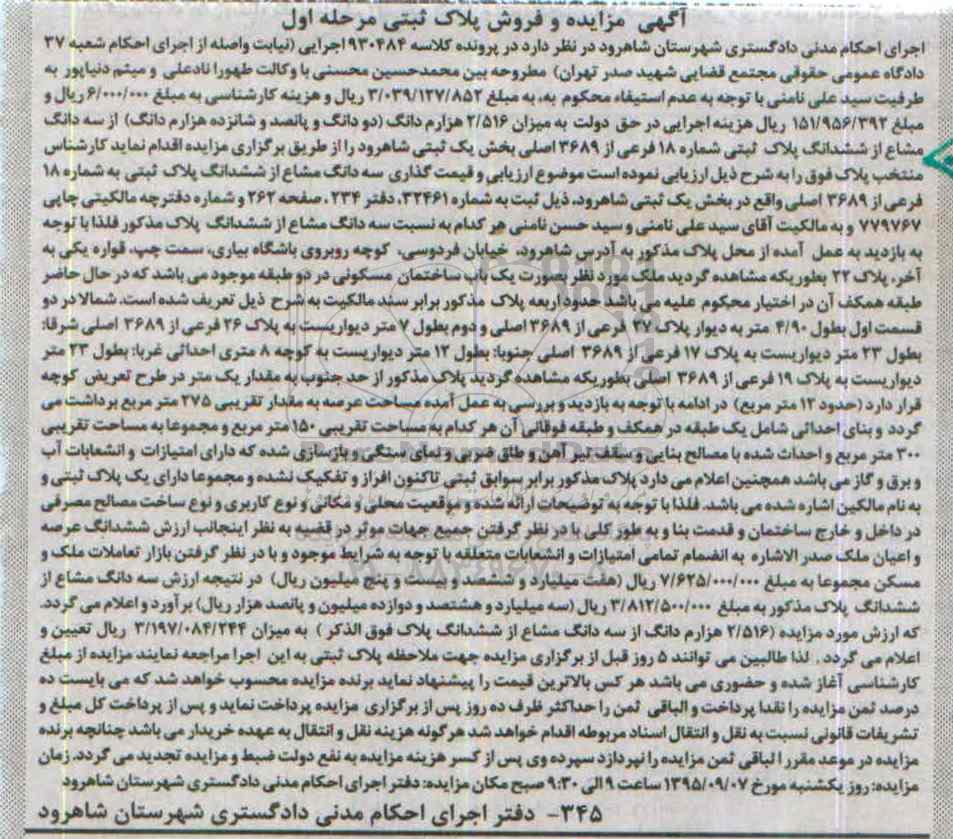 آگهی مزایده و فروش پلاک ثبتی مرحله اول
اجرای احکام مدنی دادگستری شهرستان شاهرود در نظر دارد در پرونده کلاسه ۹۳۰۴۸۴ اجرایی (نیابت واصله از اجرای احکام شعبه ۳۷
دادگاه عمومی حقوقی مجتمع قضایی شهید صدر تهران) مطروحه بین محمدحسین محسنی با وکالت طهورا نادعلی و میثم دنیاپور به
طرفیت سید علی نامنی با توجه به عدم استیفاء محکوم به، به مبلغ ۳/۰۳۹/۱۲۷/۸۵۲ ریال و هزینه کارشناسی به مبلغ ۶/۰۰۰/۰۰۰ ریال و
مبلغ ۱۵۱/۹۵۶/۳۹۲ ریال هزینه اجرایی در حق دولت به میزان ۲/۵۱۶ هزارم دانگ (دو دانگ و پانصد و شانزده هزارم دانگ) از سه دانگ
مشاع از ششدانگ پلاک ثبتی شماره ۱۸ فرعی از ۳۶۸۹ اصلی بخش یک ثبتی شاهرود را از طریق برگزاری مزایده اقدام نماید کارشناس
منتخب پلاک فوق را به شرح ذیل ارزیابی نموده است موضوع ارزیابی و قیمت گذاری سه دانگ مشاع از ششدانگ پلاک ثبتی به شماره ۱۸
فرعی از ۳۶۸۹ اصلی واقع در بخش یک ثبتی شاهرود، ذیل ثبت به شماره ۳۲۴۶۱، دفتر ۲۳۴، صفحه ۲۶۲ و شماره دفترچه مالکیتی چاپی
۷۷۹۷۶۷ و به مالکیت آقای سید علی نامنی و سید حسن نامنی هر کدام به نسبت سه دانگ مشاع از ششدانگ پلاک مذکور فلذا با توجه
به بازدید به عمل آمده از محل پلاک مذکور به آدرس شاهرود، خیابان فردوسی، کوچه روبروی باشگاه بیاری، سمت چپ، قواره یکی به
آخر، پلاک ۲۲ بطوریکه مشاهده گردید ملک مورد نظر بصورت یک باب ساختمان مسکونی در دو طبقه موجود می باشد که در حال حاضر
طبقه همکف آن در اختیار محکوم علیه می باشد حدود اربعه پلاک مذکور برابر سند مالکیت به شرح ذیل تعریف شده است. شمالا در دو
قسمت اول بطول ۴/۹۰ متر به دیوار پلاک ۲۷ فرعی از ۳۶۸۹ اصلی و دوم بطول ۷ متر دیواریست به پلاک ۲۶ فرعی از ۳۶۸۹ اصلی شرقا:
بطول ۲۳ متر دیواریست به پلاک ۱۷ فرعی از ۳۶۸۹ اصلی جنوبا: بطول ۱۲ متر دیواریست به کوچه ۸ متری احداثی غربا: بطول ۲۳ متر
دیواریست به پلاک ۱۹ فرعی از ۳۶۸۹ اصلی بطوریکه مشاهده گردید پلاک مذکور از حد جنوب به مقدار یک متر در طرح تعریض کوچه
قرار دارد (حدود ۱۲ متر مربع) در ادامه با توجه به بازدید و بررسی به عمل آمده مساحت عرصه به مقدار تقریبی ۲۷۵ متر مربع برداشت می
گردد و بنای احداثی شامل یک طبقه در همکف و طبقه فوقانی آن هر کدام به مساحت تقریبی ۱۵۰ متر مربع و مجموعا به مساحت تقریبی
۳۰۰ متر مربع و احداث شده با مصالح بنایی و سقف تیر آهن و طاق ضربی و نمای سنگی و بازسازی شده که دارای امتیازات و انشعابات آب
و برق و گاز می باشد همچنین اعلام می دارد پلاک مذکور برابر سوابق ثبتی تاکنون افراز و تفکیک نشده و مجموعا دارای یک پلاک ثبتی و
به نام مالکین اشاره شده می باشد. فلذا با توجه به توضیحات ارائه شده و موقعیت محلی و مکانی و نوع کاربری و نوع ساخت مصالح مصرفی
در داخل و خارج ساختمان و قدمت بنا و به طور کلی با در نظر گرفتن جمیع جهات موثر در قضیه به نظر اینجانب ارزش ششدانگ عرصه
و اعیان ملک صدر الاشاره به انضمام تمامی امتیازات و انشعابات متعلقه با توجه به شرایط موجود و با در نظر گرفتن بازار تعاملات ملک و
مسکن مجموعا به مبلغ ۷/۶۲۵/۰۰۰/۰۰۰ ریال (هفت میلیارد و ششصد و بیست و پنج میلیون ریال) در نتیجه ارزش سه دانگ مشاع از
ششدانگ پلاک مذکور به مبلغ ۳/۸۱۲/۵۰۰/۰۰۰ ریال (سه میلیارد و هشتصد و دوازده میلیون و پانصد هزار ریال) برآورد و اعلام می گردد.
که ارزش مورد مزایده (۲/۵۱۶ هزارم دانگ از سه دانگ مشاع از ششدانگ پلاک فوق الذکر) به میزان ۳/۱۹۷/۰۸۴/۲۴۴ ریال تعیین و
اعلام می گردد. لذا طالبین می توانند ۵ روز قبل از برگزاری مزایده جهت ملاحظه پلاک ثبتی به این اجرا مراجعه نمایند مزایده از مبلغ
کارشناسی آغاز شده و حضوری می باشد هر کس بالاترین قیمت را پیشنهاد نماید برنده مزایده محسوب خواهد شد که می بایست ده
درصد ثمن مزایده را نقدا پرداخت و الباقی ثمن را حداکثر ظرف ده روز پس از برگزاری مزایده پرداخت نماید و پس از پرداخت کل مبلغ و
تشریفات قانونی نسبت به نقل و انتقال اسناد مربوطه اقدام خواهد شد هرگونه هزینه نقل و انتقال به عهده خریدار می باشد چنانچه برنده
مزایده در موعد مقرر الباقی ثمن مزایده را نپردازد سپرده وی پس از کسر هزینه مزایده به نفع دولت ضبط و مزایده تجدید می گردد. زمان
مزایده: روز یکشنبه مورخ ۱۳۹۵/۰۹/۰۷ ساعت ۹ الی ۹:۳۰ صبح مکان مزایده: دفتر اجرای احکام مدنی دادگستری شهرستان شاهرود
۳۴۵- دفتر اجرای احکام مدنی دادگستری شهرستان شاهرود